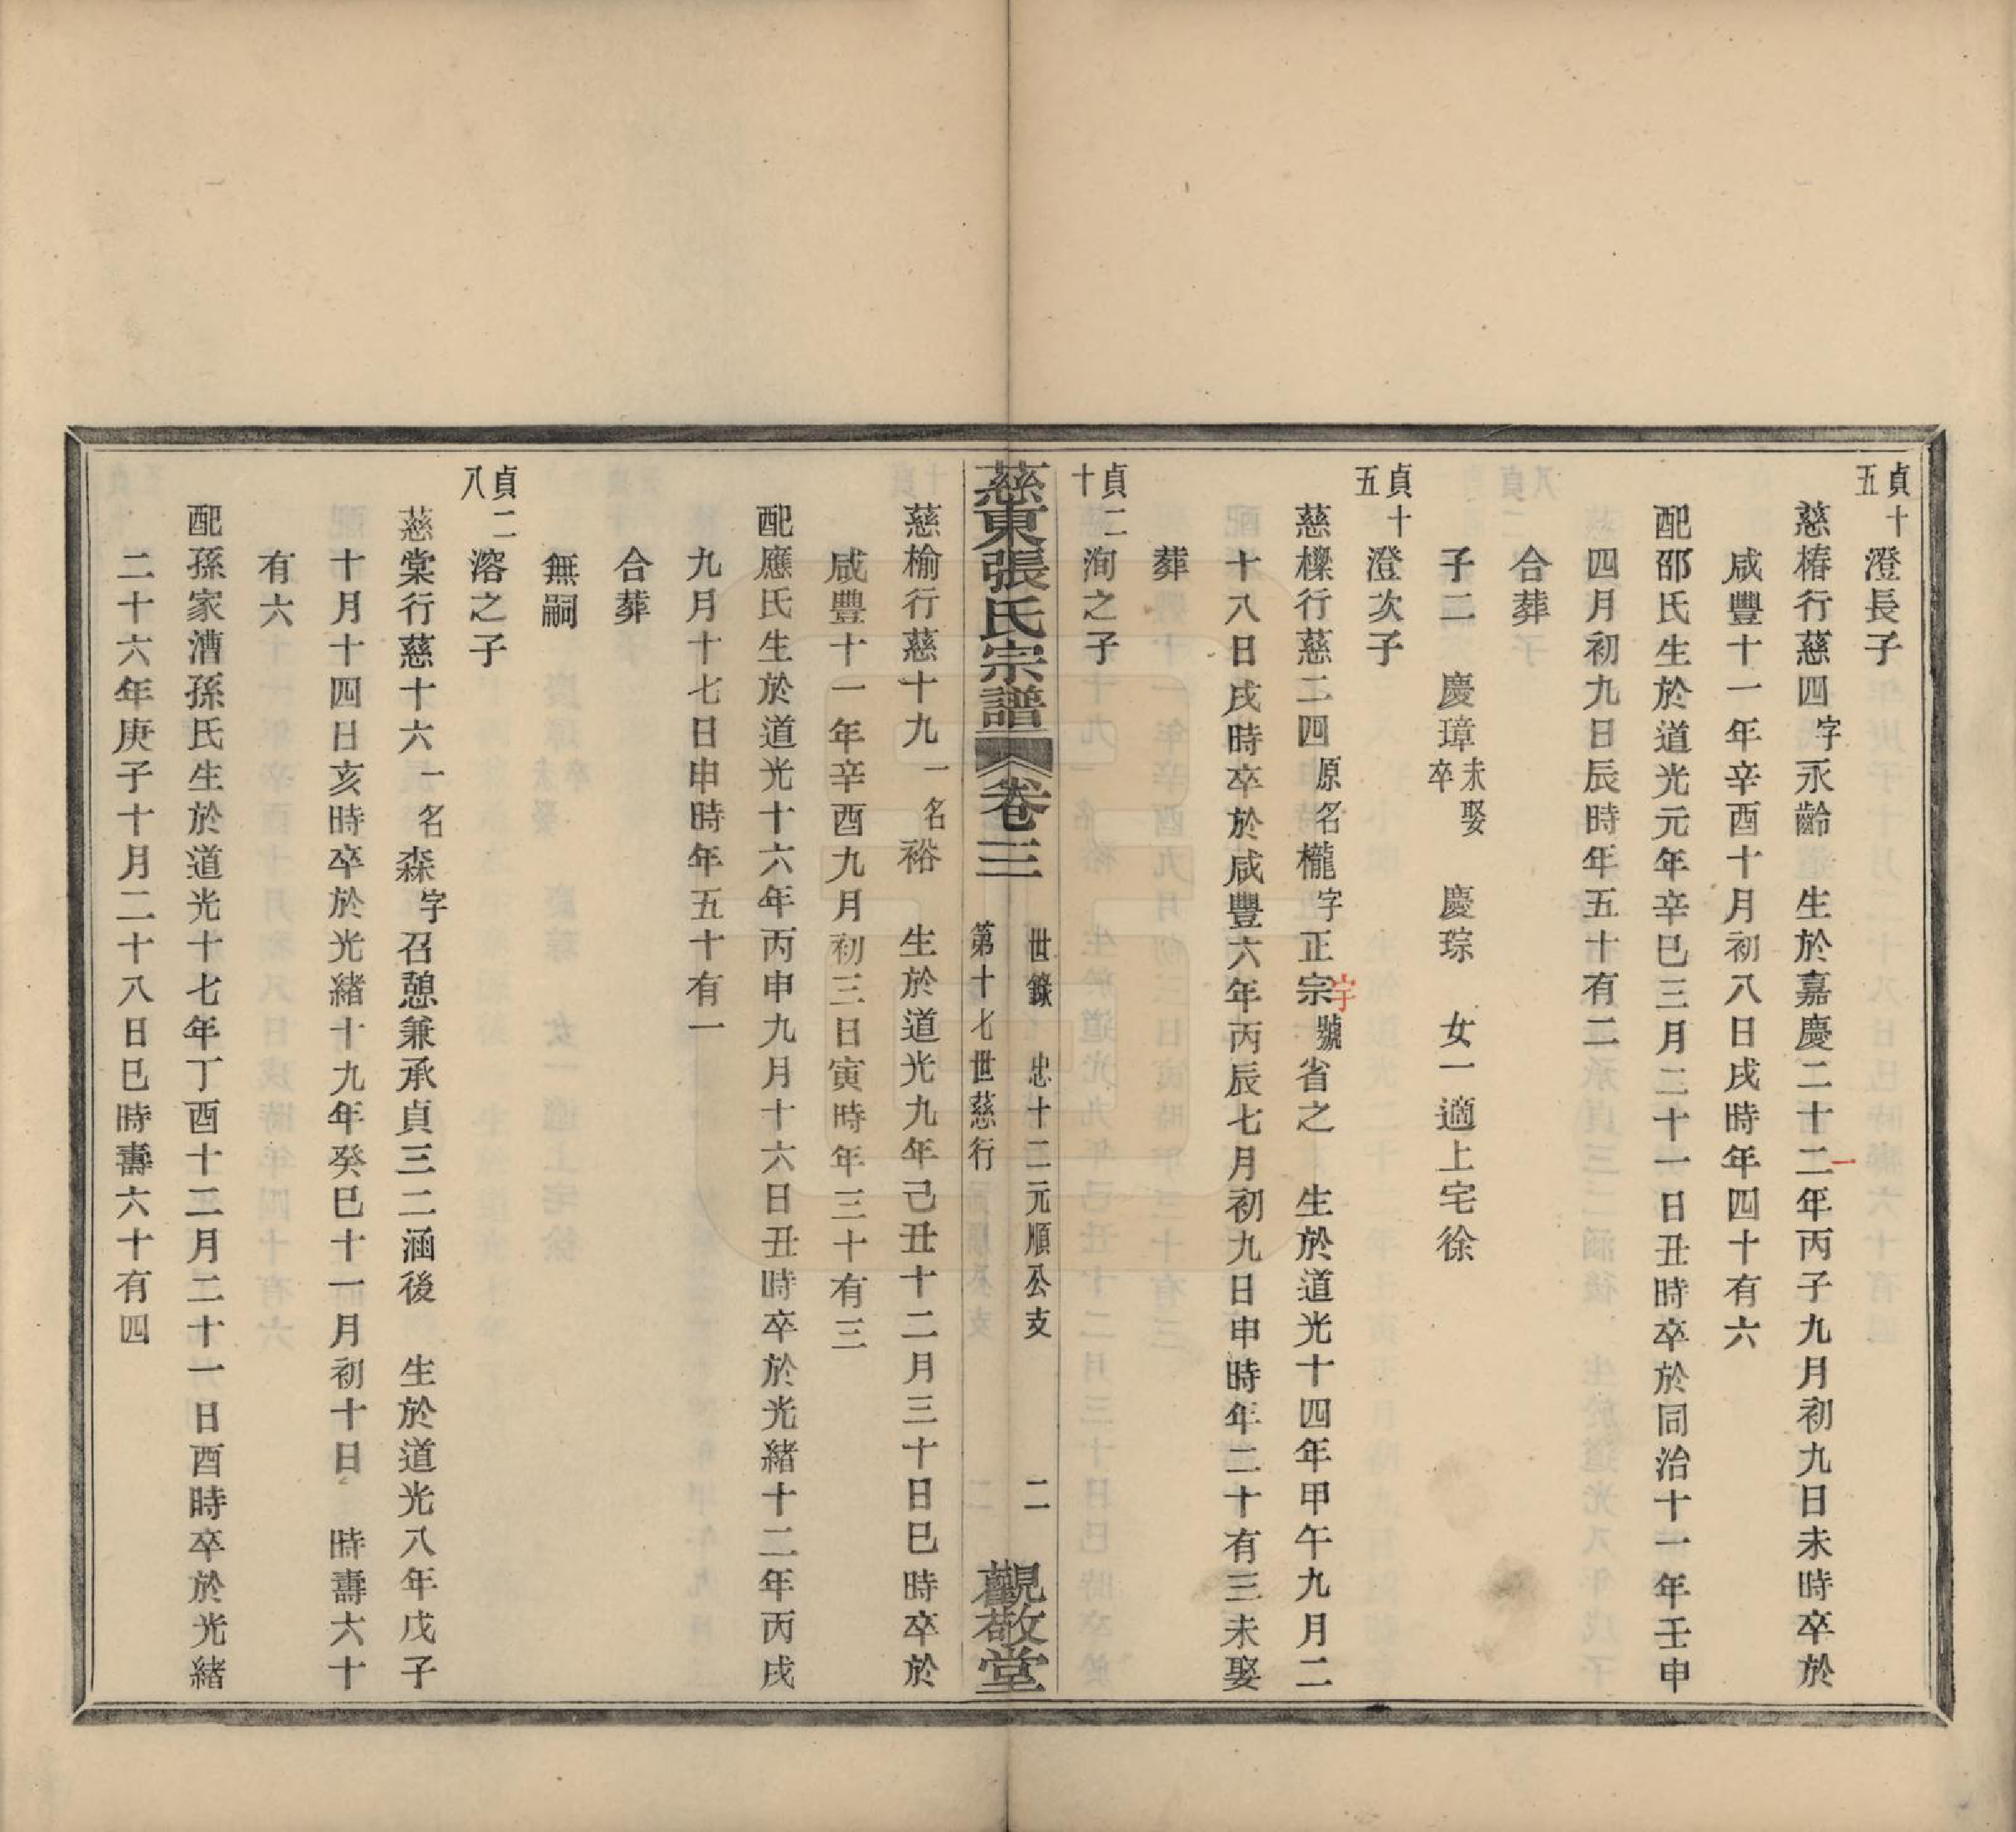 貞十五澄長子
慈椿行慈四字永齡　生於嘉慶二十二年丙子九月初九日未時卒於
咸豐十一年辛酉十月初八日戌時年四十有六
配邵氏生於道光元年辛巳三月二十一日丑時卒於同治十一年壬申
四月初九日辰時年五十有二
合葬
子二　慶璋未娶卒　慶琮　女一適上宅徐
貞十五澄次子
慈櫟行慈二四原名櫳字正宗號省之　生於道光十四年甲午九月二
字
一
十八日戌時卒於咸豐六年丙辰七月初九日申時年二十有三未娶
葬
貞二十洵之子
慈東張氏宗譜　卷三　世錄　忠十二元順公支　第十七世慈行　二　觀敬堂
慈榆行慈十九一名裕　生於道光九年己丑十二月三十日巳時卒於
咸豐十一年辛酉九月初三日寅時年三十有三
配應氏生於道光十六年丙申九月十六日丑時卒於光緒十二年丙戌
九月十七日申時年五十有一
合葬
無嗣
貞二八溶之子
慈棠行慈十六一名森字召憩兼承貞三二涵後　生於道光八年戊子
十月十四日亥時卒於光緒十九年癸巳十一月初十日　時壽六十
有六
配孫家漕孫氏生於道光十七年丁酉十二月二十一日酉時卒於光緒
二十六年庚子十月二十八日巳時壽六十有四